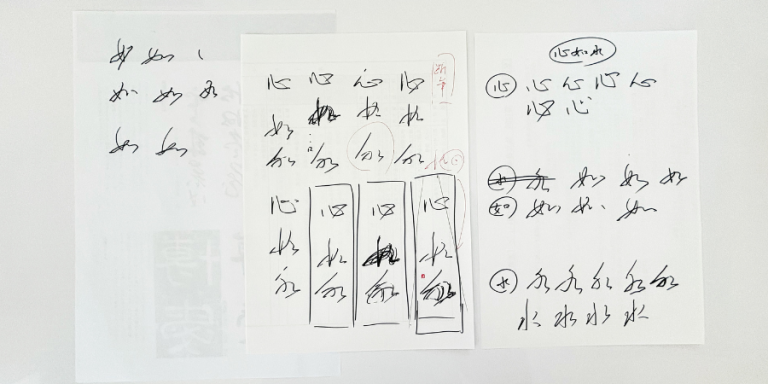 如 如
如 如 水
如 如
心 心 心 心
如 如 如
水 水 水 水
心 心 心 心
如 如 如
水 水 水 水
心如水
心 心 心 心 心
心 心
水 如 如 如
如 如 如 如
水 水 水 水 水 水
水 水 水 水